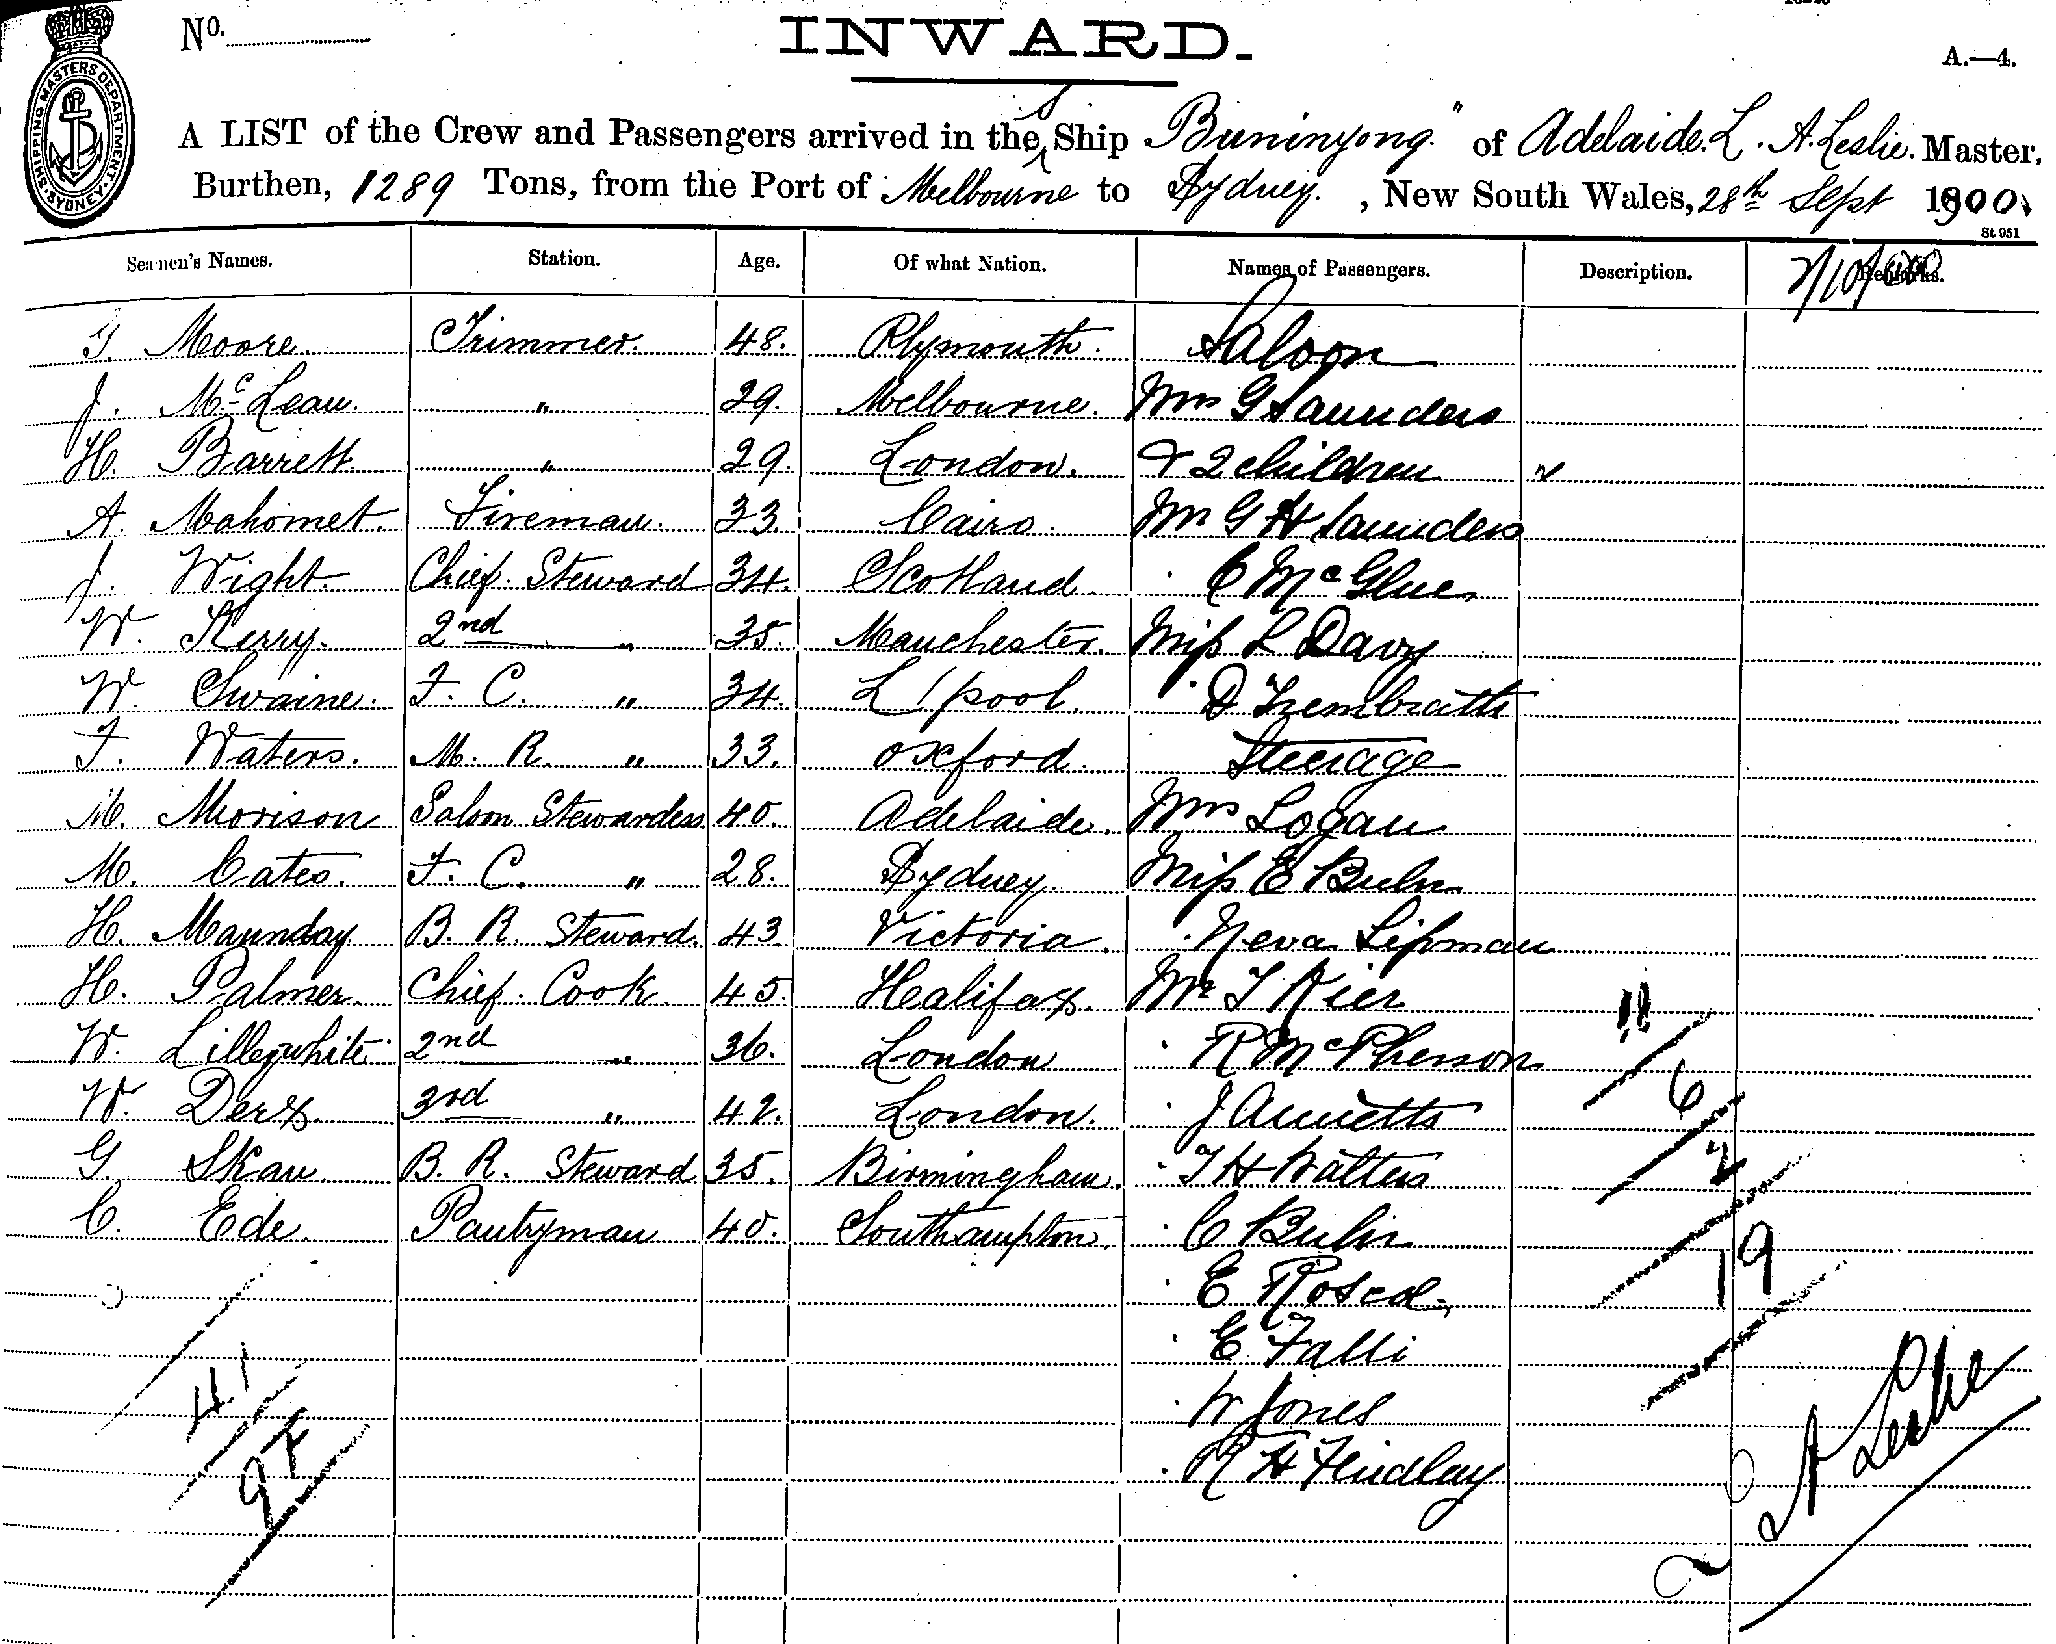 No.
INWARD.
A.—4.
SHIPPING MASTERS DEPARTMENT SYDNEY
A LIST of the Crew and Passengers arrived in the S Ship "Buninyong" of Adelaide. L. A. Leslie. Master,
Burthen, 1289 Tons, from the Port of Melbourne to Sydney. , New South Wales, 28th Sept 1900
St 951
Seamen's Names. Station. Age. Of what Nation. Names of Passengers. Description. Remarks.
G. Moore. Trimmer. 48. Plymouth. Saloon
J. McLean. " 29. Melbourne. Mrs G Saunders
H. Barrett " 29. London. & 2 children
A. Mahomet. Fireman. 33. Cairo. Mr G H Saunders
J. Wight. Chief. Steward 34. Scotland. C McGlue
W. Kerry. 2nd " 35. Manchester. Miss L Davy
W. Swaine. F. C. " 34. L'pool. " D Trembath
F. Waters. M. R. " 33. Oxford. Steerage
M. Morison Saloon Stewardess 40. Adelaide. Mrs Logan
M. Cates. F. C. " 28. Sydney. Miss E Buhr
H. Maunday B. R. Steward. 43 Victoria. " Neva Lipman
H. Palmer. Chief. Cook 45. Halifax. Mr T Kier
W. Lilleywhite 2nd " 36. London " R McPherson
W. Derx. 3rd " 42. London. " J
G. Skau B. R. Steward 35. Birmingham. " T H Walters
C. Ede. Pantryman 40. Southampton. " C Buhr
" E Roscoe
" E. Falli
" W Jones
" R H Findlay
18
6
2
19
41
A Leslie